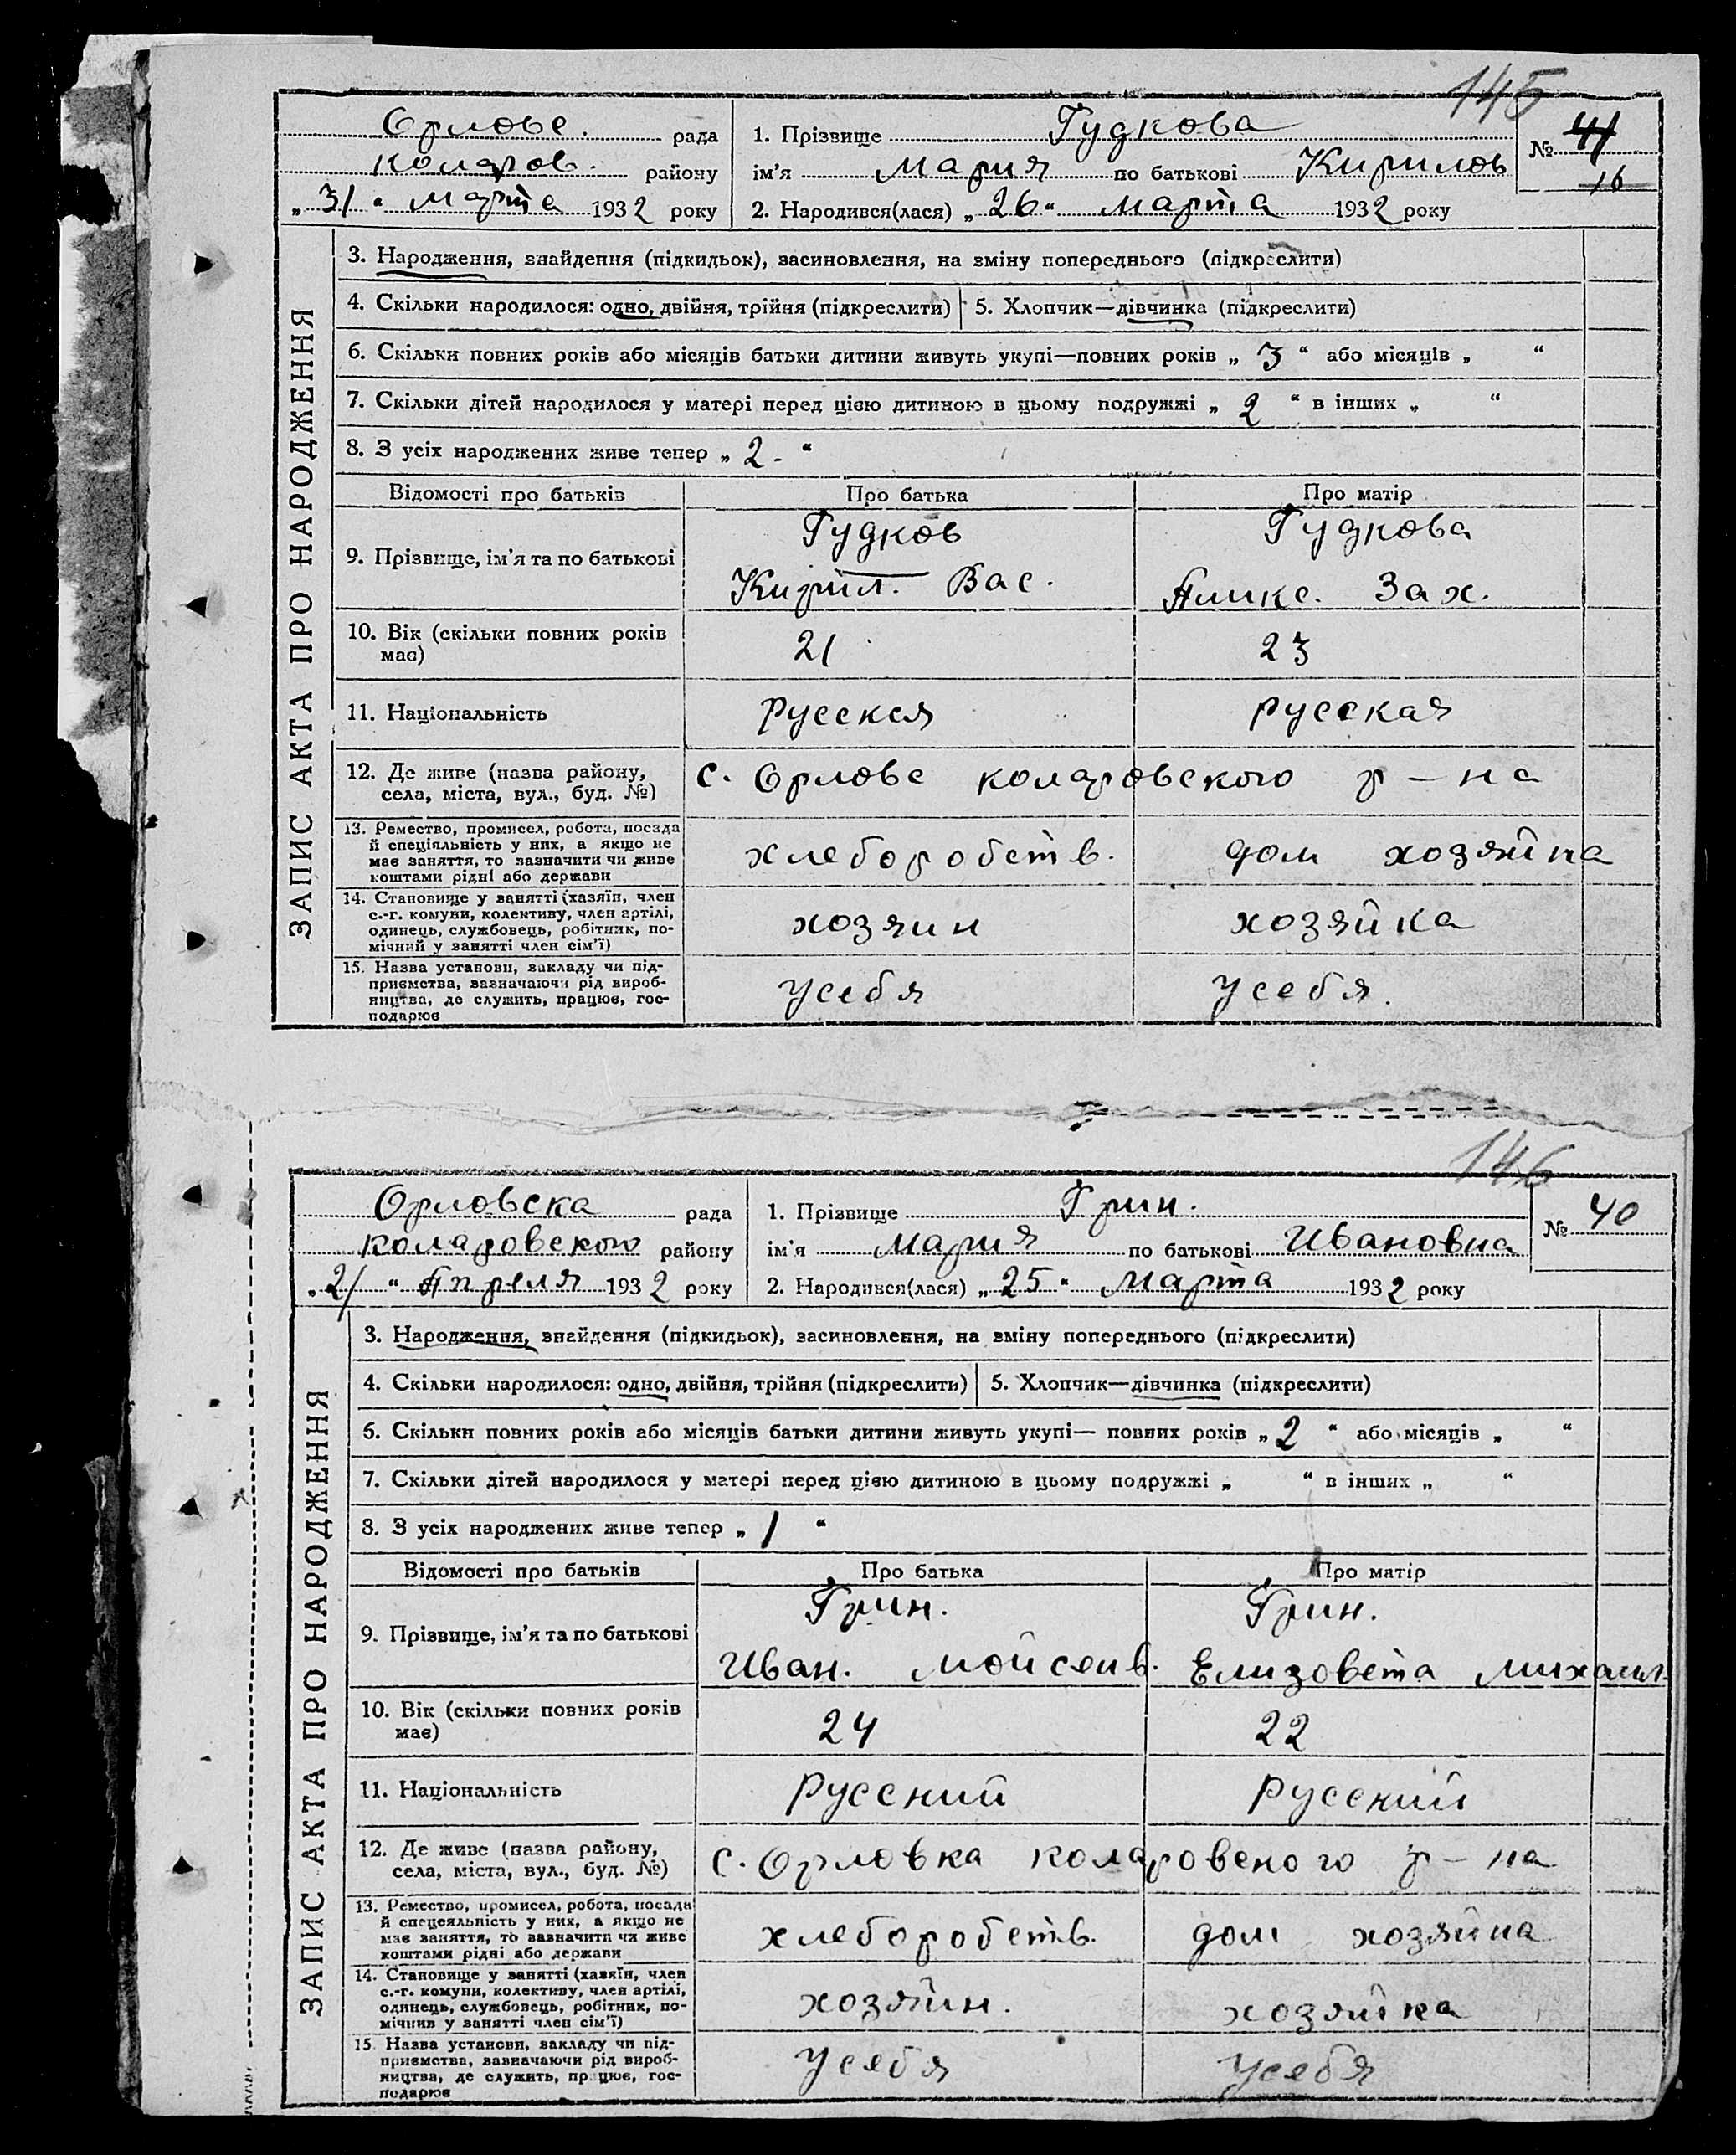 145
Орлове. рада
коларов. району
„ 31 “ марта 1932 року
1. Прізвище Гудкова
ім'я Мария по батькові Кирилов
2. Народився(лася) „ 26 “ марта 1932 року
№ 41
16
ЗАПИС АКТА ПРО НАРОДЖЕННЯ
3. Народження, знайдення (підкидьок), засиновлення, на зміну попереднього (підкреслити)
4. Скільки народилося: одно, двійня, трійня (підкреслити) 5. Хлопчик—дівчинка (підкреслити)
6. Скільки повних років або місяців батьки дитини живуть укупі—повних років „ 3 “ або місяців „ “
7. Скільки дітей народилося у матері перед цією дитиною в цьому подружжі „ 2 “ в інших „ “
8. З усіх народжених живе тепер „ 2 - “
Відомості про батьків Про батька Про матір
9. Прізвище, ім'я та по батькові
Гудков
Кирил. Вас.
Гудкова
Аликс. Зах.
10. Вік (скільки повних років
має)
21
23
11. Національність русския русская
12. Де живе (назва району,
села, міста, вул., буд. №)
с. Орлове коларовского р-на
13. Ремество, промисел, робота, посада
й спеціяльність у них, а якщо не
має заняття, то зазначити чи живе
коштами рідні або держави
хлеборобств.
дом хозяйна
14. Становище у занятті (хазяїн, член
с.-г. комуни, колективу, член артілі,
одинець, службовець, робітник, по-
мічний у занятті член сім'ї)
хозяин
хозяйка
15. Назва установи, закладу чи під-
приємства, зазначаючи рід вироб-
ництва, де служить, працює, гос-
подарює
усебя
усебя.
146
Орловска рада
коларовского району
„ 21 “ Апреля 1932 року
1. Прізвище Грин.
ім'я Мария по батькові Ивановна
2. Народився(лася) „ 25 “ Марта 1932 року
№ 40
ЗАПИС АКТА ПРО НАРОДЖЕННЯ
3. Народження, знайдення (підкидьок), засиновлення, на зміну попереднього (підкреслити)
4. Скільки народилося: одно, двійня, трійня (підкреслить) 5. Хлопчик—дівчинка (підкреслити)
6. Скільки повних років або місяців батьки дитини живуть укупі— повних років „ 2 “ або місяців „ “
7. Скільки дітей народилося у матері перед цією дитиною в цьому подружжі „ “ в інших „ “
8. З усіх народжених живе тепер „ 1 “
Відомості про батьків Про батька Про матір
9. Прізвище, ім'я та по батькові
Грин.
Иван. Мойсеив.
Грин.
Елизовета Михаил.
10. Вік (скільки повних років
має)
24
22
11. Національність Русский русский
12. Де живе (назва району,
села, міста, вул., буд. №)
с. Орловка коларовского р-на
13. Ремество, промисел, робота, посади
й спецеяльність у них, а якщо не
має заняття, то зазначити чи живе
коштами рідні або держави
хлеборобств.
дом хозяйна
14. Становище у занятті (хазяїн, член
с.-г. комуни, колективу, член артілі,
одинець, службовець, робітник, по-
мічнив у занятті член сім'ї)
хозяйн.
хозяйка
15. Назва установи, закладу чи під-
приємства, зазначаючи рід вироб-
ництва, де служить, працює, гос-
подарює
усебя
усебя